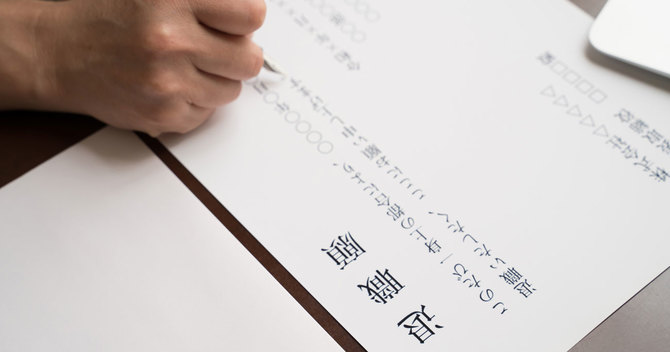 退職願
このたび一身上の都合により、○○○○年○月
退職いたしたく、ここにお願い申し上げます。
令和×年×月×
○○部○○○
株式会社△△△△△△
取締役 □□□□殿